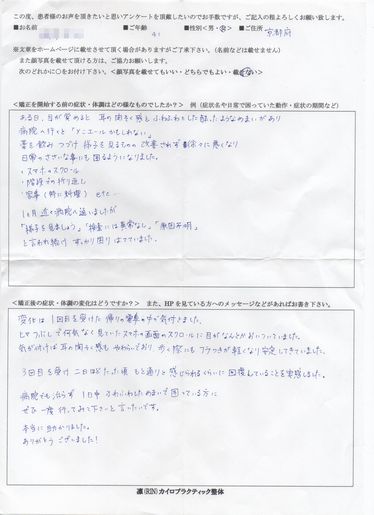 この度、患者様のお声を頂きたいと思いアンケートを頂戴したいのでお手数ですが、ご記入の程よろしくお願い致します。
■お名前 ■ご年齢 41 ■性別<男・女> ■ご住所 京都府
※文章をホームページに載せさせて頂く場合がありますがご了承下さい。(名前などは載せません)
また顔写真を載せて頂ける方は、ご協力お願いします。
次のどれかに○をお付け下さい。<顔写真を載せてもいい・どちらでもよい・載せない>
<矯正を開始する前の症状・体調はどの様なものでしたか？ 例（症状名や日常で困っていた動作・症状の期間など）
ある日、目が覚めると 耳の閉そく感とふわふわとした酔ったようなめまいがあり
病院へ行くと「メニエールかもしれない」
薬を飲みつづけ様子を見るものの改善されず徐々に悪くなり
日常のささいな事にも困るようになりました。
・スマホのスクロール
・階段での折り返し
・家事(特に料理) etc…
1ヶ月近く病院へ通いましたが
「様子を見ましょう」「検査には異常なし」「原因不明」
と言われ続け すっかり困りはてていました。
<矯正後の症状・体調の変化はどうですか？> また、HPを見ている方へのメッセージなどがあればお書き下さい。
変化は1回目を受けた帰りの電車の中で気付きました。
ヒマつぶしで何気なく見ていたスマホの画面のスクロールに目がなんとかおいついていました。
気が付けば耳の閉そく感もやわらいでおり 歩く際にもフラつきが軽くなり安定してきていました。
3回目を受け 二日ほどたった頃 もと通りと感じられるくらいに回復していることを実感しました。
病院でも治らず 1日中ふわふわしためまいで困っている方に
ぜひ一度行ってみて下さいと言いたいです。
本当に助かりました。
ありがとうございました!
凛(RIN)カイロプラクティック整体